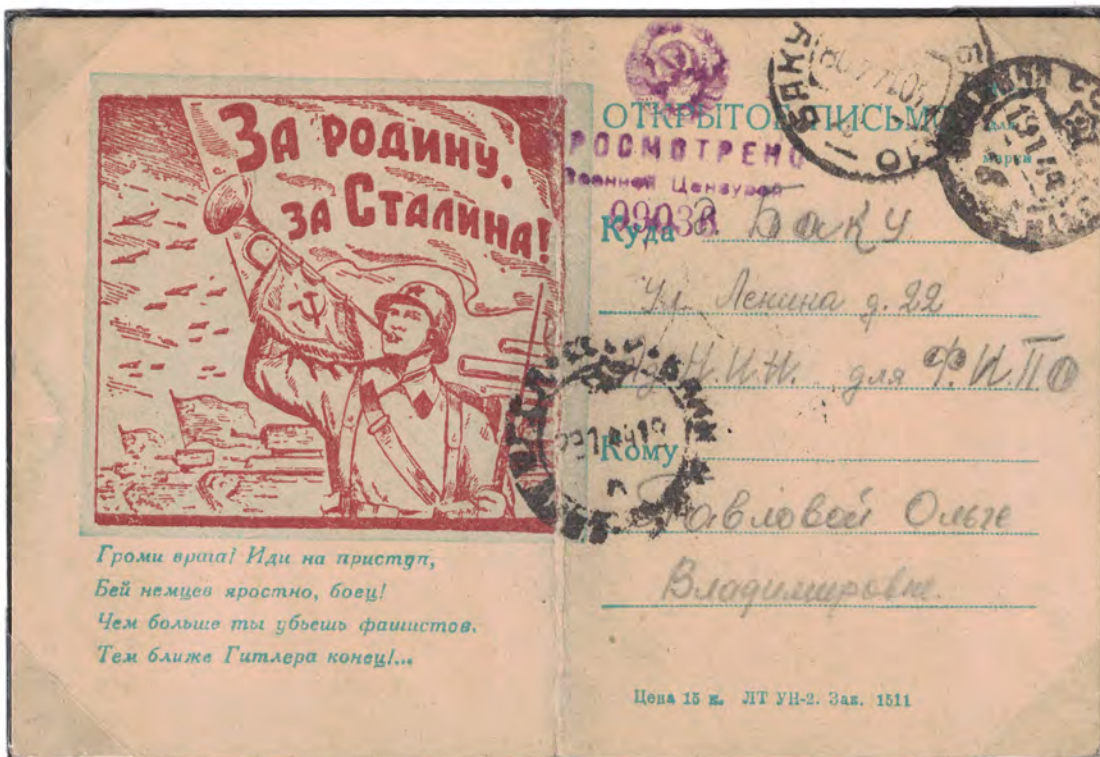 За Родину,
за Сталина!
Громи врага! Иди на приступ,
Бей немцев яростно, боец!
Чем больше ты убьешь фашистов,
Тем ближе Гитлера конец!...
ОТКРЫТОЕ ПИСЬМО
для
марки
ПРОСМОТРЕНО
Военной Цензурой
09036
БАКУ
Куда г. Баку
Ул. Ленина д. 22
Н.И.И. для Ф.И.П.О
Кому
Павловой Ольге
Владимировне.
Цена 15 к. ЛТ УН-2. Зак. 1511